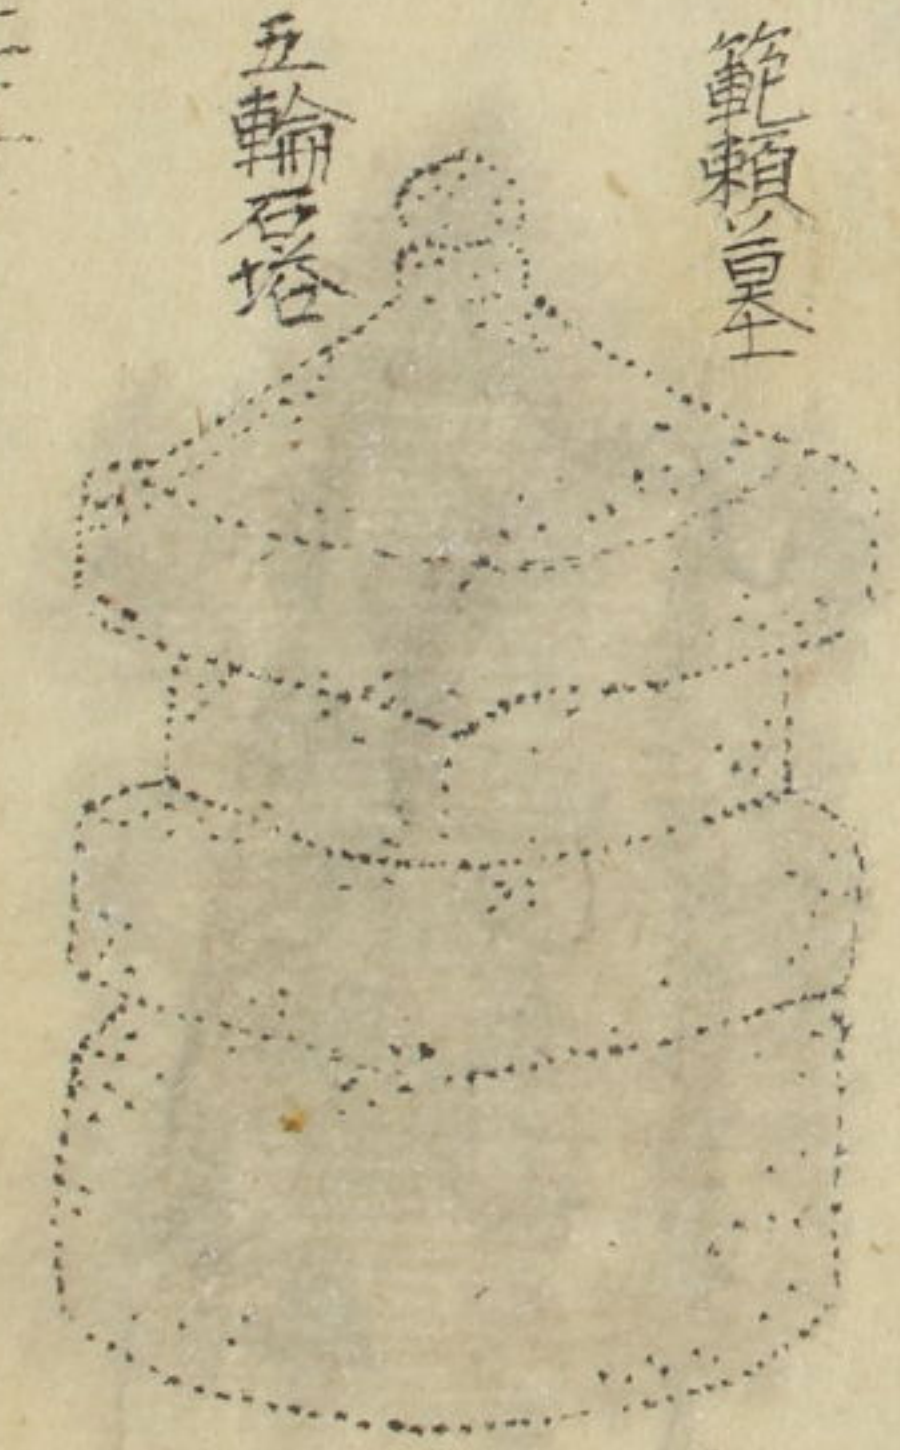 範頼墓
五輪石塔